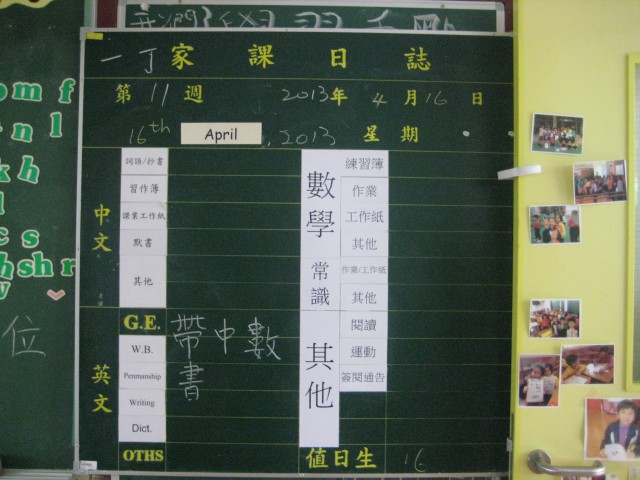 一丁家課日誌
第11週 2013年4月16日
16th April, 2013 星期
中文
詞語/抄書
習作簿
課業工作紙
默書
其他
英文
G.E. 帶中數
W.B. 書
Penmanship
Writing
Dict.
OTHS
數學
練習簿
作業
工作紙
其他
常識
作業/工作紙
其他
其他
閱讀
運動
簽閱通告
值日生 16
om f
n l
k h
l
c s
h sh r
y
位